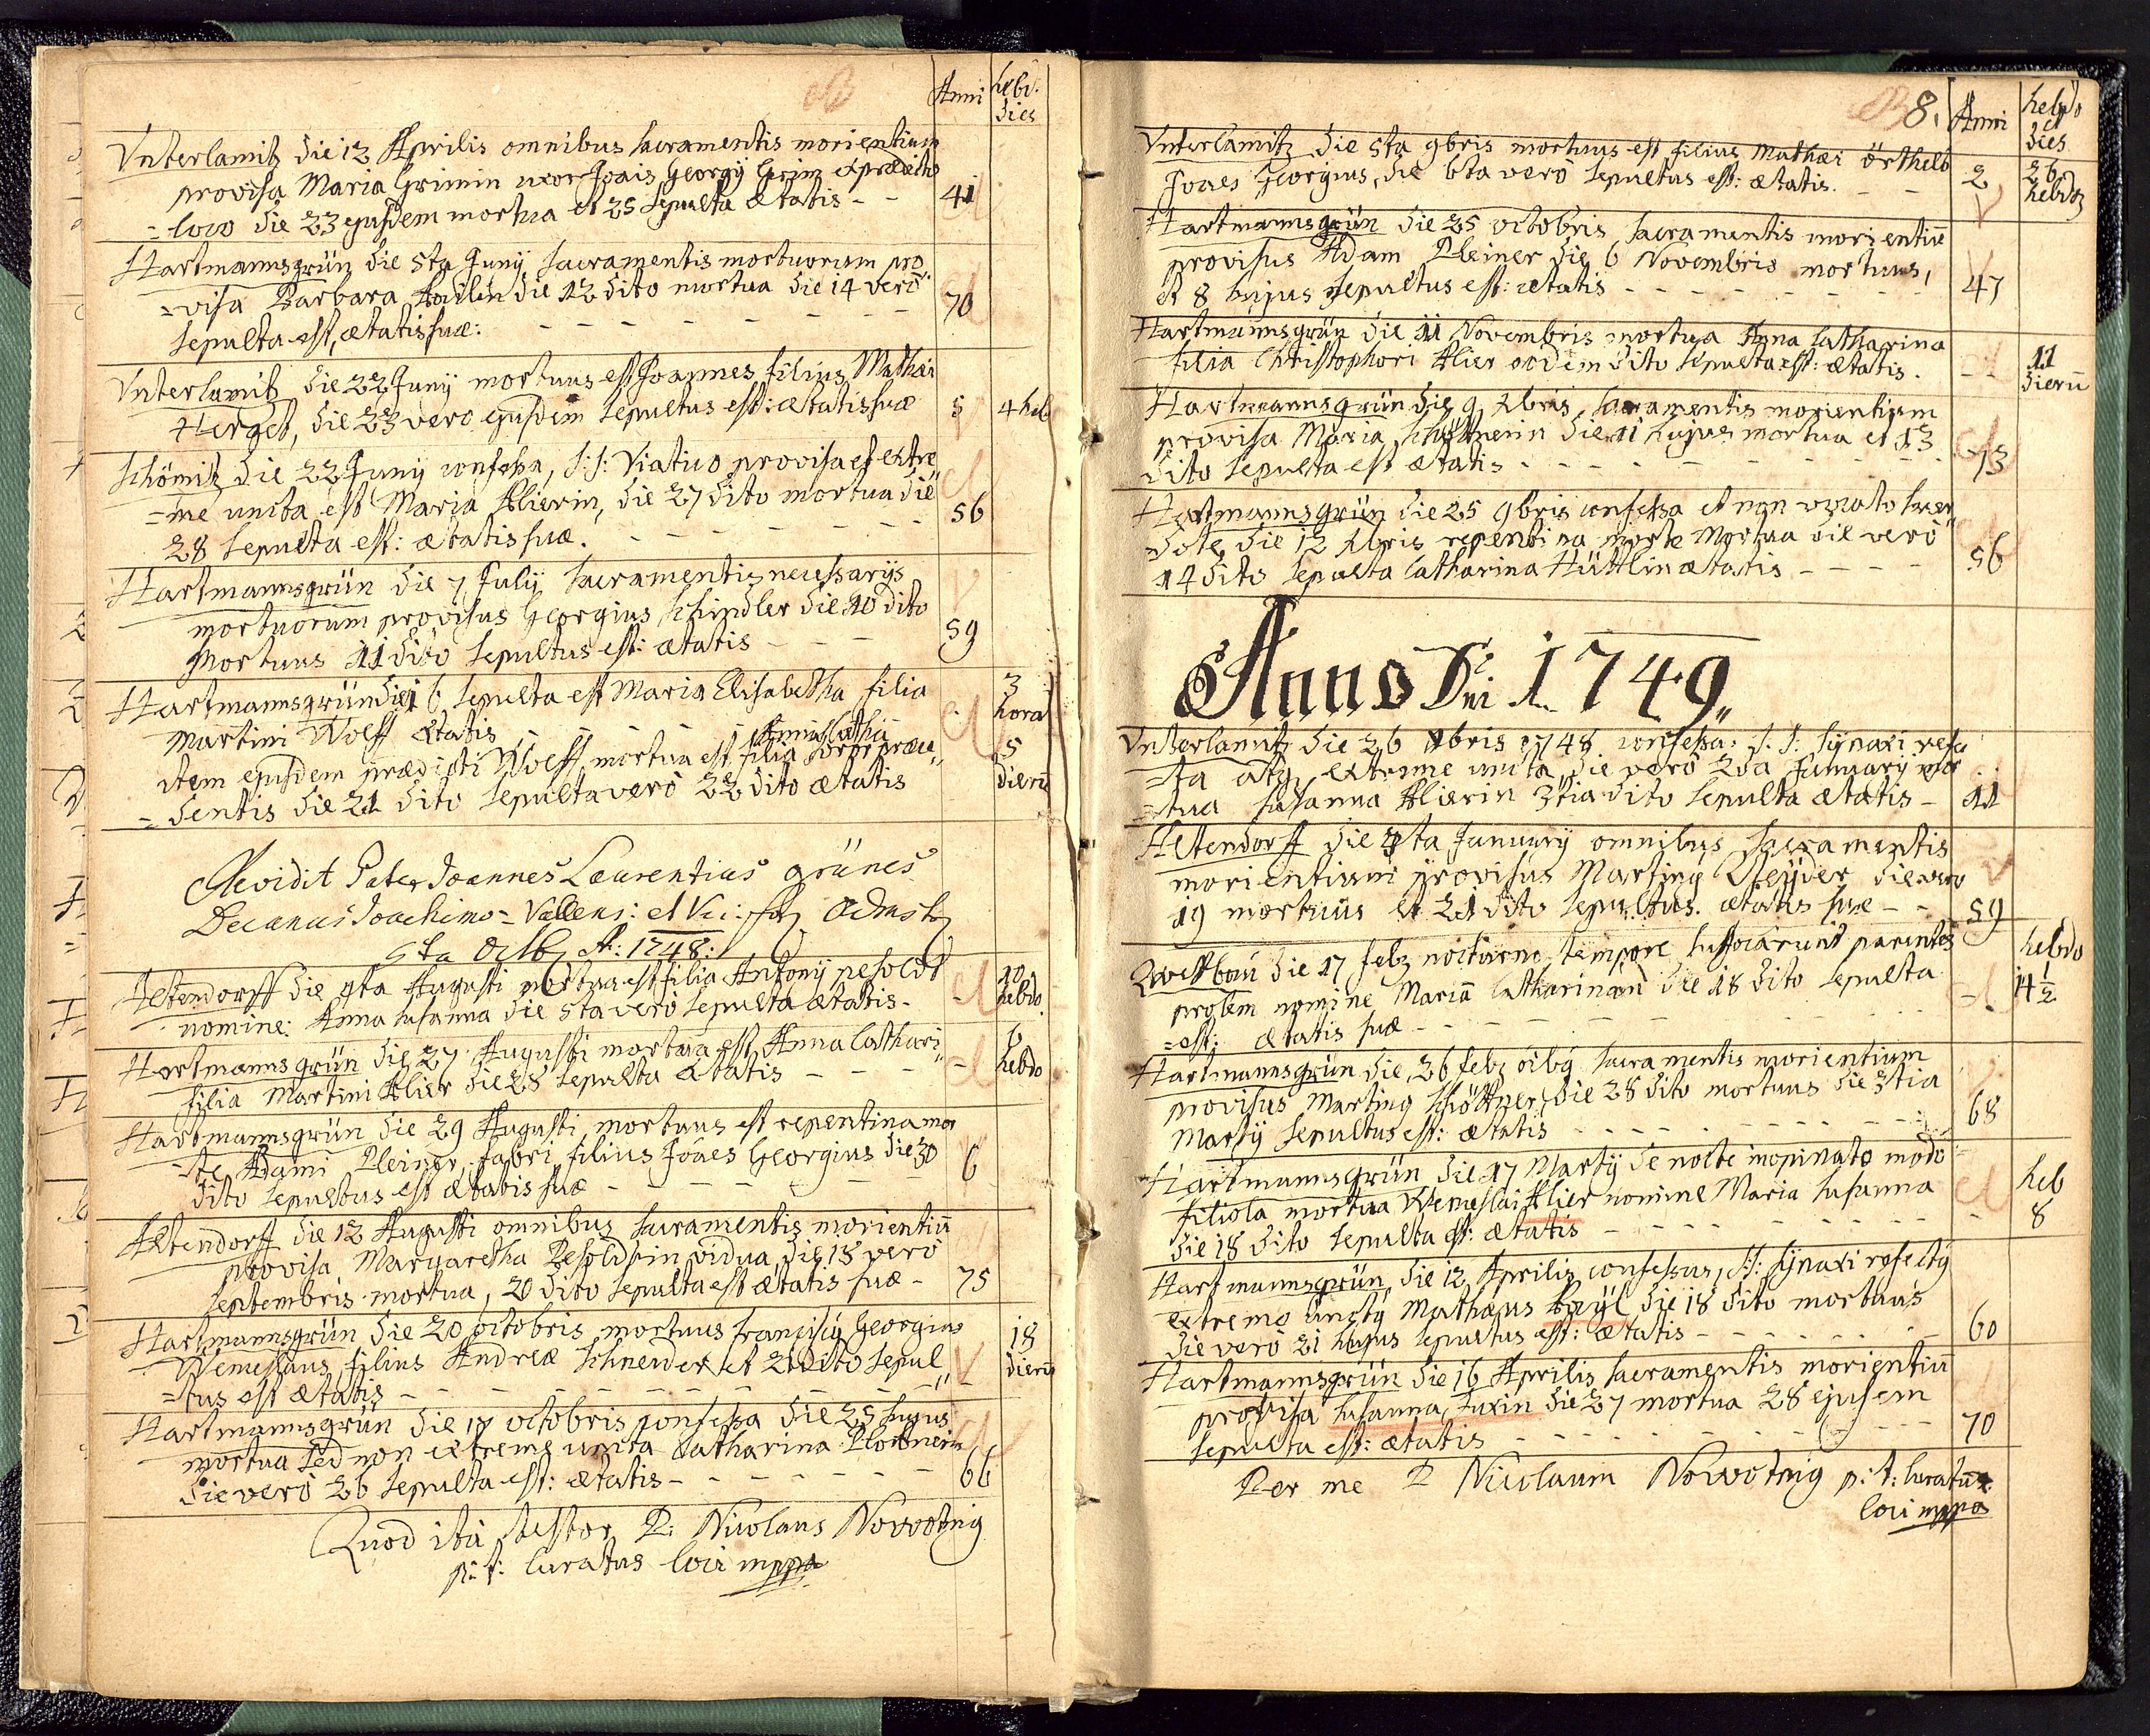 Anni hebd. dies
Vnterlamitz die 12 Aprilis omnibus sacramentis morientium
provisa Maria Grimin uxor Joais Georgÿ Grim ex prædicto
=loco die 23 ejusdem mortua et 25 sepulta ætatis - - 41
Hartmannsgrün die 5ta Junÿ sacramentis mortuorum pro
=visa Barbara die 12 dito mortua die 14 verò
sepulta est, ætatis suæ: - - - - - - 70
Vnterlamitz die 22 Junÿ mortuus est Joannes filius Mathæi
Herget, die 23 vero ejusdem sepultus est: ætatis suæ 5 4 heb
Schömitz die 22 Junÿ confessa, S: S: Viatico provisa et extre
=me uncta est Maria Klierin, die 27 dito mortua die
28 sepulta est: ætatis suæ. - - - - 56
Hartmannsgrün die 7 Julÿ sacramentis necessarÿs
mortuorum provisus Georgius Schindler die 10 dito
Mortuus 11 dito sepultus est: ætatis - - - 59
Hartmannsgrün die 16 sepulta est Maria Elisabetha filia
Martini Wolff ætatis - - - - 3 hora
Anna Catha
item ejusdem prædicti Wolff mortua est filia soror præce
=dentis die 21 dito sepulta verò 22 dito ætatis 5 dierū
Revidit Pater Joannes Laurentius grünes
Decanus Joachimo=Vallens: et
5ta Octb A: 1748:
Altendorff die 4ta Augusti mortua est filia Antonÿ pesoldt
nomine: Anna Susanna die 5ta verò sepulta ætatis - - 10 hebdo.
Hartmannsgrün die 27 Augusti mortua est Anna Cathari
filia Martini Klier die 28 sepulta ætatis - - - - 6 hebdo
Hartmannsgrün die 29 Augusti mortuus est repentina mor
=te Adami Pleiner fabri filius Joães Georgius die 30
dito sepultus est ætatis suæ - - - - - 6
Altendorff die 12 Augusti omnibus sacramentis morientiū
provisa Margaretha Pesoldtin vidua, die 18 vero
septembris mortua, 20 dito sepulta est ætatis suæ - 75
Hartmannsgrün die 20 octobris mortuus Georgius
Wenceslaus filius Andreæ Schneider et 21 dito sepul
=tus est ætatis - - - - - - - 18 dierū
Hartmannsgrün die 17 octobris confessa die 25 hujus
mortua sed non extreme uncta Catharina
die verò 26 sepulta est: ætatis - - - - - - 66
Quod ita testor P: Nicolaus Novvotnig
p: t: Curatus loci mppa
8. Anni hebdo et dies
Vnterlamitz die 5ta 9bris mortuus est filius Mathæi örthelb
Joaes Georgius, die 6ta verò sepultus est: ætatis. - - 2 26 hebdz
Hartmannsgrün die 25 octobris sacramentis morientiū
provisus Adam Pleiner die 6 Novembris mortuus,
et 8 hujus sepultus est: ætatis - - - - - - - 47
Hartmannsgrün die 11 Novembris mortua Anna Catharina
filia Christophori Klier eodem dito sepulta est: ætatis. - - 11 dierū
Hartmannsgrün die 9 Xbris, sacramentis morientium
provisa Maria die 11 hujus mortua et 13
dito sepulta est ætatis - - - - - - - 73
Hartmannsgrün die 25 9bris confessa et non vocato sacer
dote, die 12 Xbris repentina morte Mortua die verò
14 dito sepulta Catharina Hüttlin ætatis - - - - 56
Anno Dni 1749
Vnterlamitz die 26 Xbris 1748 confessa: S. S: synaxi refe
=cta atq extreme uncta, die verò 2da January mor
=tua Susanna Klierin 3tia dito sepulta ætatis - 11
Altendorff die 4ta January omnibus sacramentis
morientium provisus Marting die vero
19 mortuus et 21 dito sepultus. ætatis suæ - - 59
die 17 febz nocturno tempore suffocarunt parentes
prolem nomine Mariā Catharinam die 18 dito sepulta
=est: ætatis suæ - - - - - - hebdo 14 1/2
Hartmannsgrün die 26 febz oibg sacramentis morientium
provisus Marting Schöttner, die 28 dito mortuus die 3tia
Martÿ sepultus est: ætatis - - - - - - 68
Hartmannsgrün die 17 Martÿ de nocte inopinato modo
filiola mortua Wenceslai Klier nomine Maria Susanna
die 18 dito sepulta est: ætatis - - - - - - heb 8
Hartmannsgrün die 12 Aprilis confessus, S: S: synaxi refectg
extremo unctg Mathæus die 18 dito mortuus
die verò 21 hujus sepultus est: ætatis - - - - - 60
Hartmannsgrün die 16 Aprilis sacramentis morientiū
provisa Susanna Fuxin die 27 mortua 28 ejusdem
sepulta est: ætatis - - - - - - 70
Per me P Nicolaum Novvotnig p: t: Curatum
loci mppa